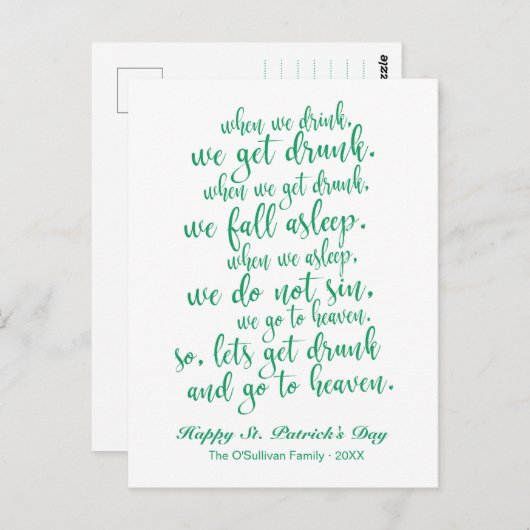 when we drink,
we get drunk.
when we get drunk,
we fall asleep.
when we asleep,
we do not sin,
we go to heaven.
so, lets get drunk
and go to heaven.
Happy St. Patrick's Day
The O'Sullivan Family · 20XX